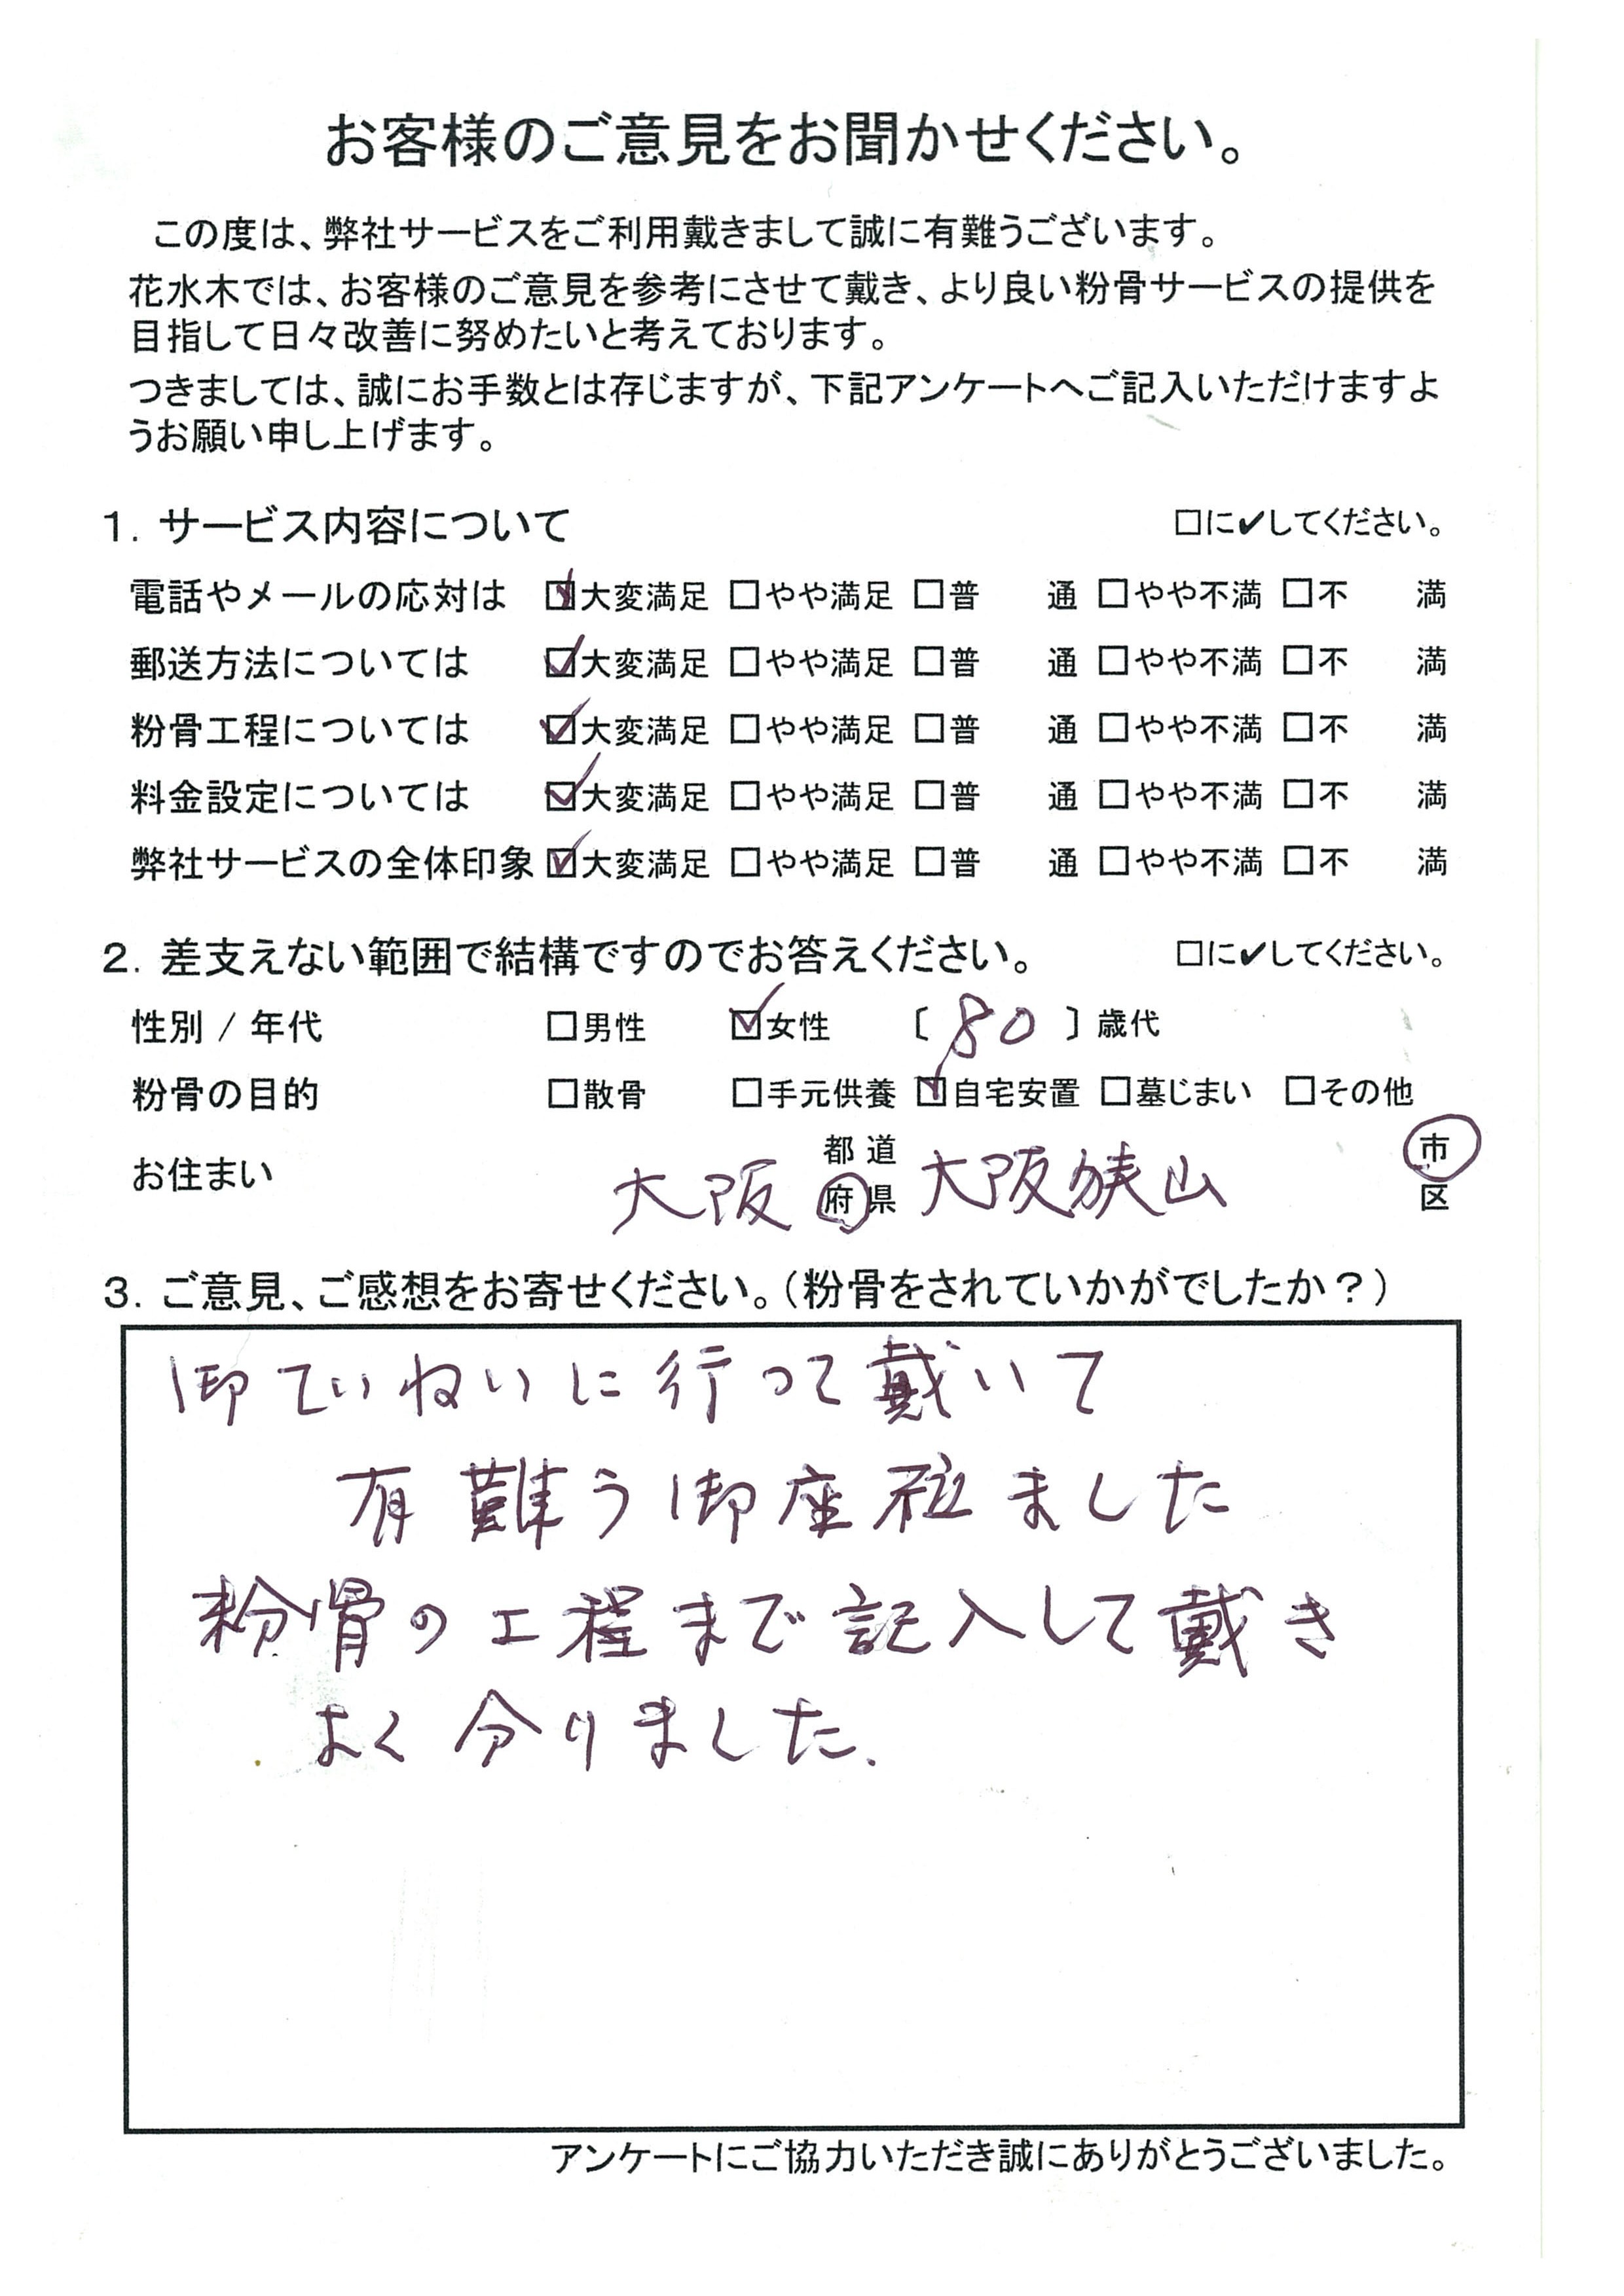 お客様のご意見をお聞かせください。
この度は、弊社サービスをご利用戴きまして誠に有難うございます。
花水木では、お客様のご意見を参考にさせて戴き、より良い粉骨サービスの提供を
目指して日々改善に努めたいと考えております。
つきましては、誠にお手数とは存じますが、下記アンケートへご記入いただけますよ
うお願い申し上げます。
1. サービス内容について □に✔してください。
電話やメールの応対は ☑大変満足 □やや満足 □普 通 □やや不満 □不 満
郵送方法については ☑大変満足 □やや満足 □普 通 □やや不満 □不 満
粉骨工程については ☑大変満足 □やや満足 □普 通 □やや不満 □不 満
料金設定については ☑大変満足 □やや満足 □普 通 □やや不満 □不 満
弊社サービスの全体印象 ☑大変満足 □やや満足 □普 通 □やや不満 □不 満
2. 差支えない範囲で結構ですのでお答えください。 □に✔してください。
性別 / 年代 □男性 ☑女性 〔 80 〕歳代
粉骨の目的 □散骨 □手元供養 ☑自宅安置 □墓じまい □その他
お住まい 大阪 都道府県 大阪狭山 市区
3. ご意見、ご感想をお寄せください。(粉骨をされていかがでしたか？)
御ていねいに行って戴いて
有難う御座ました
粉骨の工程まで記入して戴き
よく分りました.
アンケートにご協力いただき誠にありがとうございました。